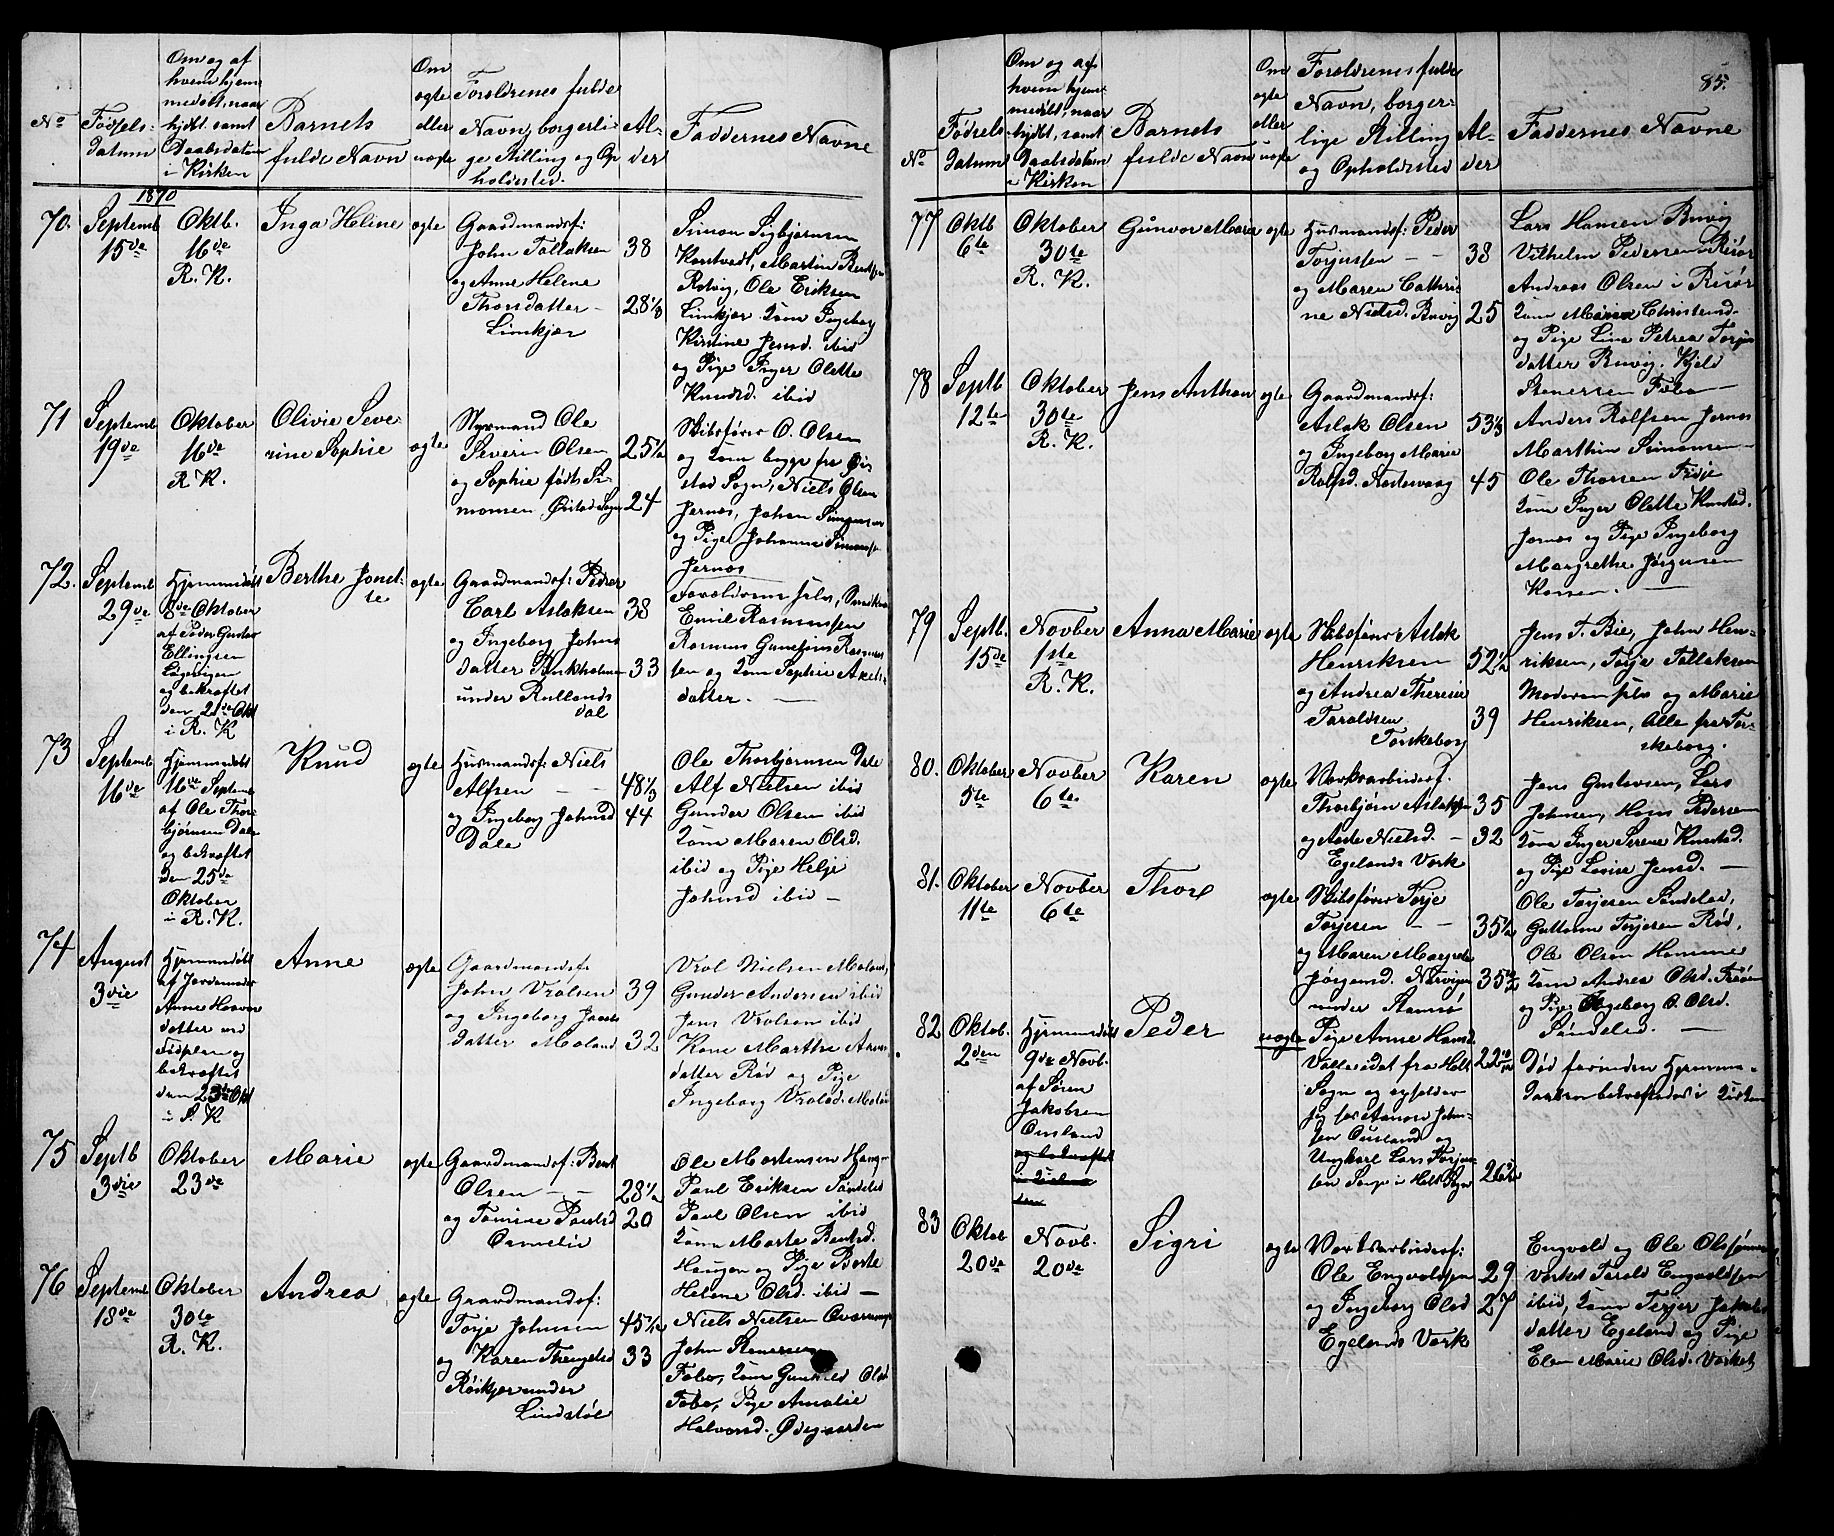 No
Fødsels-
datum
Om og af
hvem hjem-
medøbt, naar
hjdbt. samt
Daabsdatum
i Kirken
Barnets
fulde Navn
Om
ægte
eller
uægte
Forældrenes fulde
Navn, borgerli-
ge Stilling og Op-
holdssted.
Al-
der
Faddernes Navne
1870
70.
Septemb
15de
Oktb.
16de
R. K.
Inga Heline
ægte
Gaardmandsf:
John Tallaksen
og Anne Helene
Thorsdatter –
Limkjær
38
28 1/3
Simon Sigbjørnsen
Martin Bentsen
Ole Eriksen
Limkjær. Kone Ingeborg
Kirstine Jensd. ibid
og Pige Inger Olette
Knudsd. ibid
71
Septemb
19de
Oktober
16de
R. K.
Olivie Seve-
rine Sophie
ægte
Styrmand Ole
Severin Olsen
og Sophie født Si-
monsen Øistad Sogn
25 1/2
24
Skibsfører O. Olsen
og Kone begge fra Øi-
stad Sogn, Niels Olsen
Jernæs, Johan Simonsen
og Pige Johanne Simons
Jernæs
72.
Septemb
29de
Hjemmedøbt
8de Oktober
af Peder Gustav
Ellingsen
og bekræftet
den 21de Okt
i R. K
Berthe Jonet-
te
ægte
Gaardmandsf: Peder
Carl Aslaksen
og Ingeborg Johns
datter Binkholmen
under Rullands
dal
38
33
Forældrene selv,
Emil Rasmussen
Rasmus Rasmus
sen og Kone Sophie Axels
datter. –
73
Septemb
16de
Hjemmedøbt
16de Septemb
af Ole Thor-
bjørnsen Dale
og bekræftet
den 25de
Oktober
i R. K.
Knud
ægte
Husmandsf: Niels
Alfsen – –
og Ingeborg Johnsd
Dale
48 1/3
44
Ole Thorbjørnsen Dale
Alf Nielsen ibid
Gunder Olsen ibid
Kone Maren Olsd.
ibid og Pige Helje
Johnsd ibid –
74
August
3die
Hjemmedøbt
af Jordemoder
Anne Haavor
datter ved
Fødselen og
bekræftet
den 23de Okt
i S. K
Anne
ægte
Gaardmandsf:
John Vrolsen
og Ingeborg Jacobs
datter Moland
39
32
Vrol Nielsen Moland
Gunder Andersen ibid
Jens Vrolsen ibid
Kone Marthe Aanon
datter Rød og Pige
Ingeborg Vrolsd. Moland
75
Septb
3die
Oktober
23de
Marie
ægte
Gaardmandsf: Bent
Olsen – –
og Tomine Poulsd
Ormelie
28 1/2
20
Ole Mortensen Haug-
Paul Eriksen Søndeled
Paul Olsen ibid
Kone Marte Bentsd.
Haugen og Pige Berte
Helene Olsd. ibid –
76
Septemb
18de
Oktober
30te
R. K.
Andrea
ægte
Gaardmandsf:
Torje Johnsen
og Karen Thengelsd
Røikjær under
Lindstøl
45 1/2
33
Niels Nielsen
John Stenersen
Fobo, Kone Gunhild Olsd
Fobo, Pige Amalie
Halvorsd. Ødegaarden
85.
No
Fødsels
datum
Om og af
hvem hjem-
medøbt, naar
hjdbt, samt
Daabsdatum
i Kirken
Barnets
fulde Navn
Om
ægte
eller
uægte
Forældrenes fulde
Navn, borger-
lige Stilling
og Opholdssted
Al-
der
Faddernes Navne
77
Oktb
6te
Oktober
30te
R. K.
Gunvor Marie
ægte
Husmandsf: Peder
Torjussen – –
og Maren Cathri-
ne Nielsd. Buvig
38
25
Lars Hansen Buvig
Vilhelm Pedersen Risør
Andreas Olsen i Risør
Kone Maria Christensd.
og Pige Line Petrea Torjus
datter Buvig. Kjeld
Stenersen Fobo –
78
Septb
12te
Oktober
30te
R. K.
Jens Anthon
ægte
Gaardmandsf:
Aslak Olsen
og Ingeborg Marie
Rolfsd.
53 1/3
45
Anders Rolfsen Jernæs
Marthin Simonsen
Ole Thorsen
Kone Inger Olette Knutsd.
Jernæs og Pige Ingeborg
Margrethe Jørgensen
79
Septb.
15de
Novber
1ste
R. K.
Anna Marie
ægte
Skibsfører Aslak
Henriksen
og Andrea Theresie
Taraldsen
Torskeborg
52 1/2
39
Jens T. Bie, John Hen-
riksen, Torje Tallaksen
Moderen selv og Marie
Henriksen, Alle fra Tor-
skeborg.
80.
Oktober
5te
Novber
6te.
Karen
ægte
Værksarbeiderf.
Thorbjørn Aslaksen
og Aaste Nielsd. –
Egelands Værk
35
32
Jens Gustavsen, Lars
Johnsen, Hans Pedersen
Kone Inger Serene Knutsd.
og Pige Lovise Jensd. –
81.
Oktober
11te
Novber
6te
Thore
ægte
Skibsfører Torje
Torjesen – –
og Maren Margrete
Jørgensd. Narvigen
under Stamsø
35 1/2
Ole Torjesen Søndeled,
Guttorm Torjesen Rød,
Ole Olsen Hamme
Kone Andrea Olsd.
og Pige Ingeborg O. Olsd.
Søndeled. –
82
Oktob.
2den
Hjemmedøbt
9de Novb.
af Søren
Jakobsen
Ousland
og bekræftet
i Kirken
den
Peder
uægte
Pige Anne Hansd
fra Holt
Sogn og opholder
sig hos Aanon John-
sen Ousland og
Ungkarl Lars Torju-
sen Songe i Holt Sogn
Død førinden Hjemme-
daaben bekræftedes i Kirken
83
Oktob
20de
Novb.
20de
Sigri
ægte
Værksarbeiderf:
Ole Engvoldsen
og Ingeborg Olsd
Egelands Værk
29
27
Engvold og Ole
Værket Tarald Engvoldsen
ibid, Kone Terjer Jakobs
datter Egeland og Pige
Elen Marie Olsd. Værket